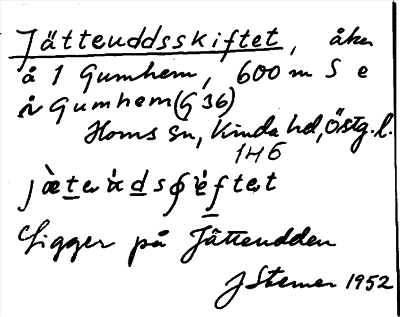 Jätteuddsskiftet, åker
å 1 Gumhem, 600 m S e
Gumhem (G 36)
Horns sn, Kinda hd, Östg. l.
1H6
Ligger på Jätteudden
J Sterner 1952